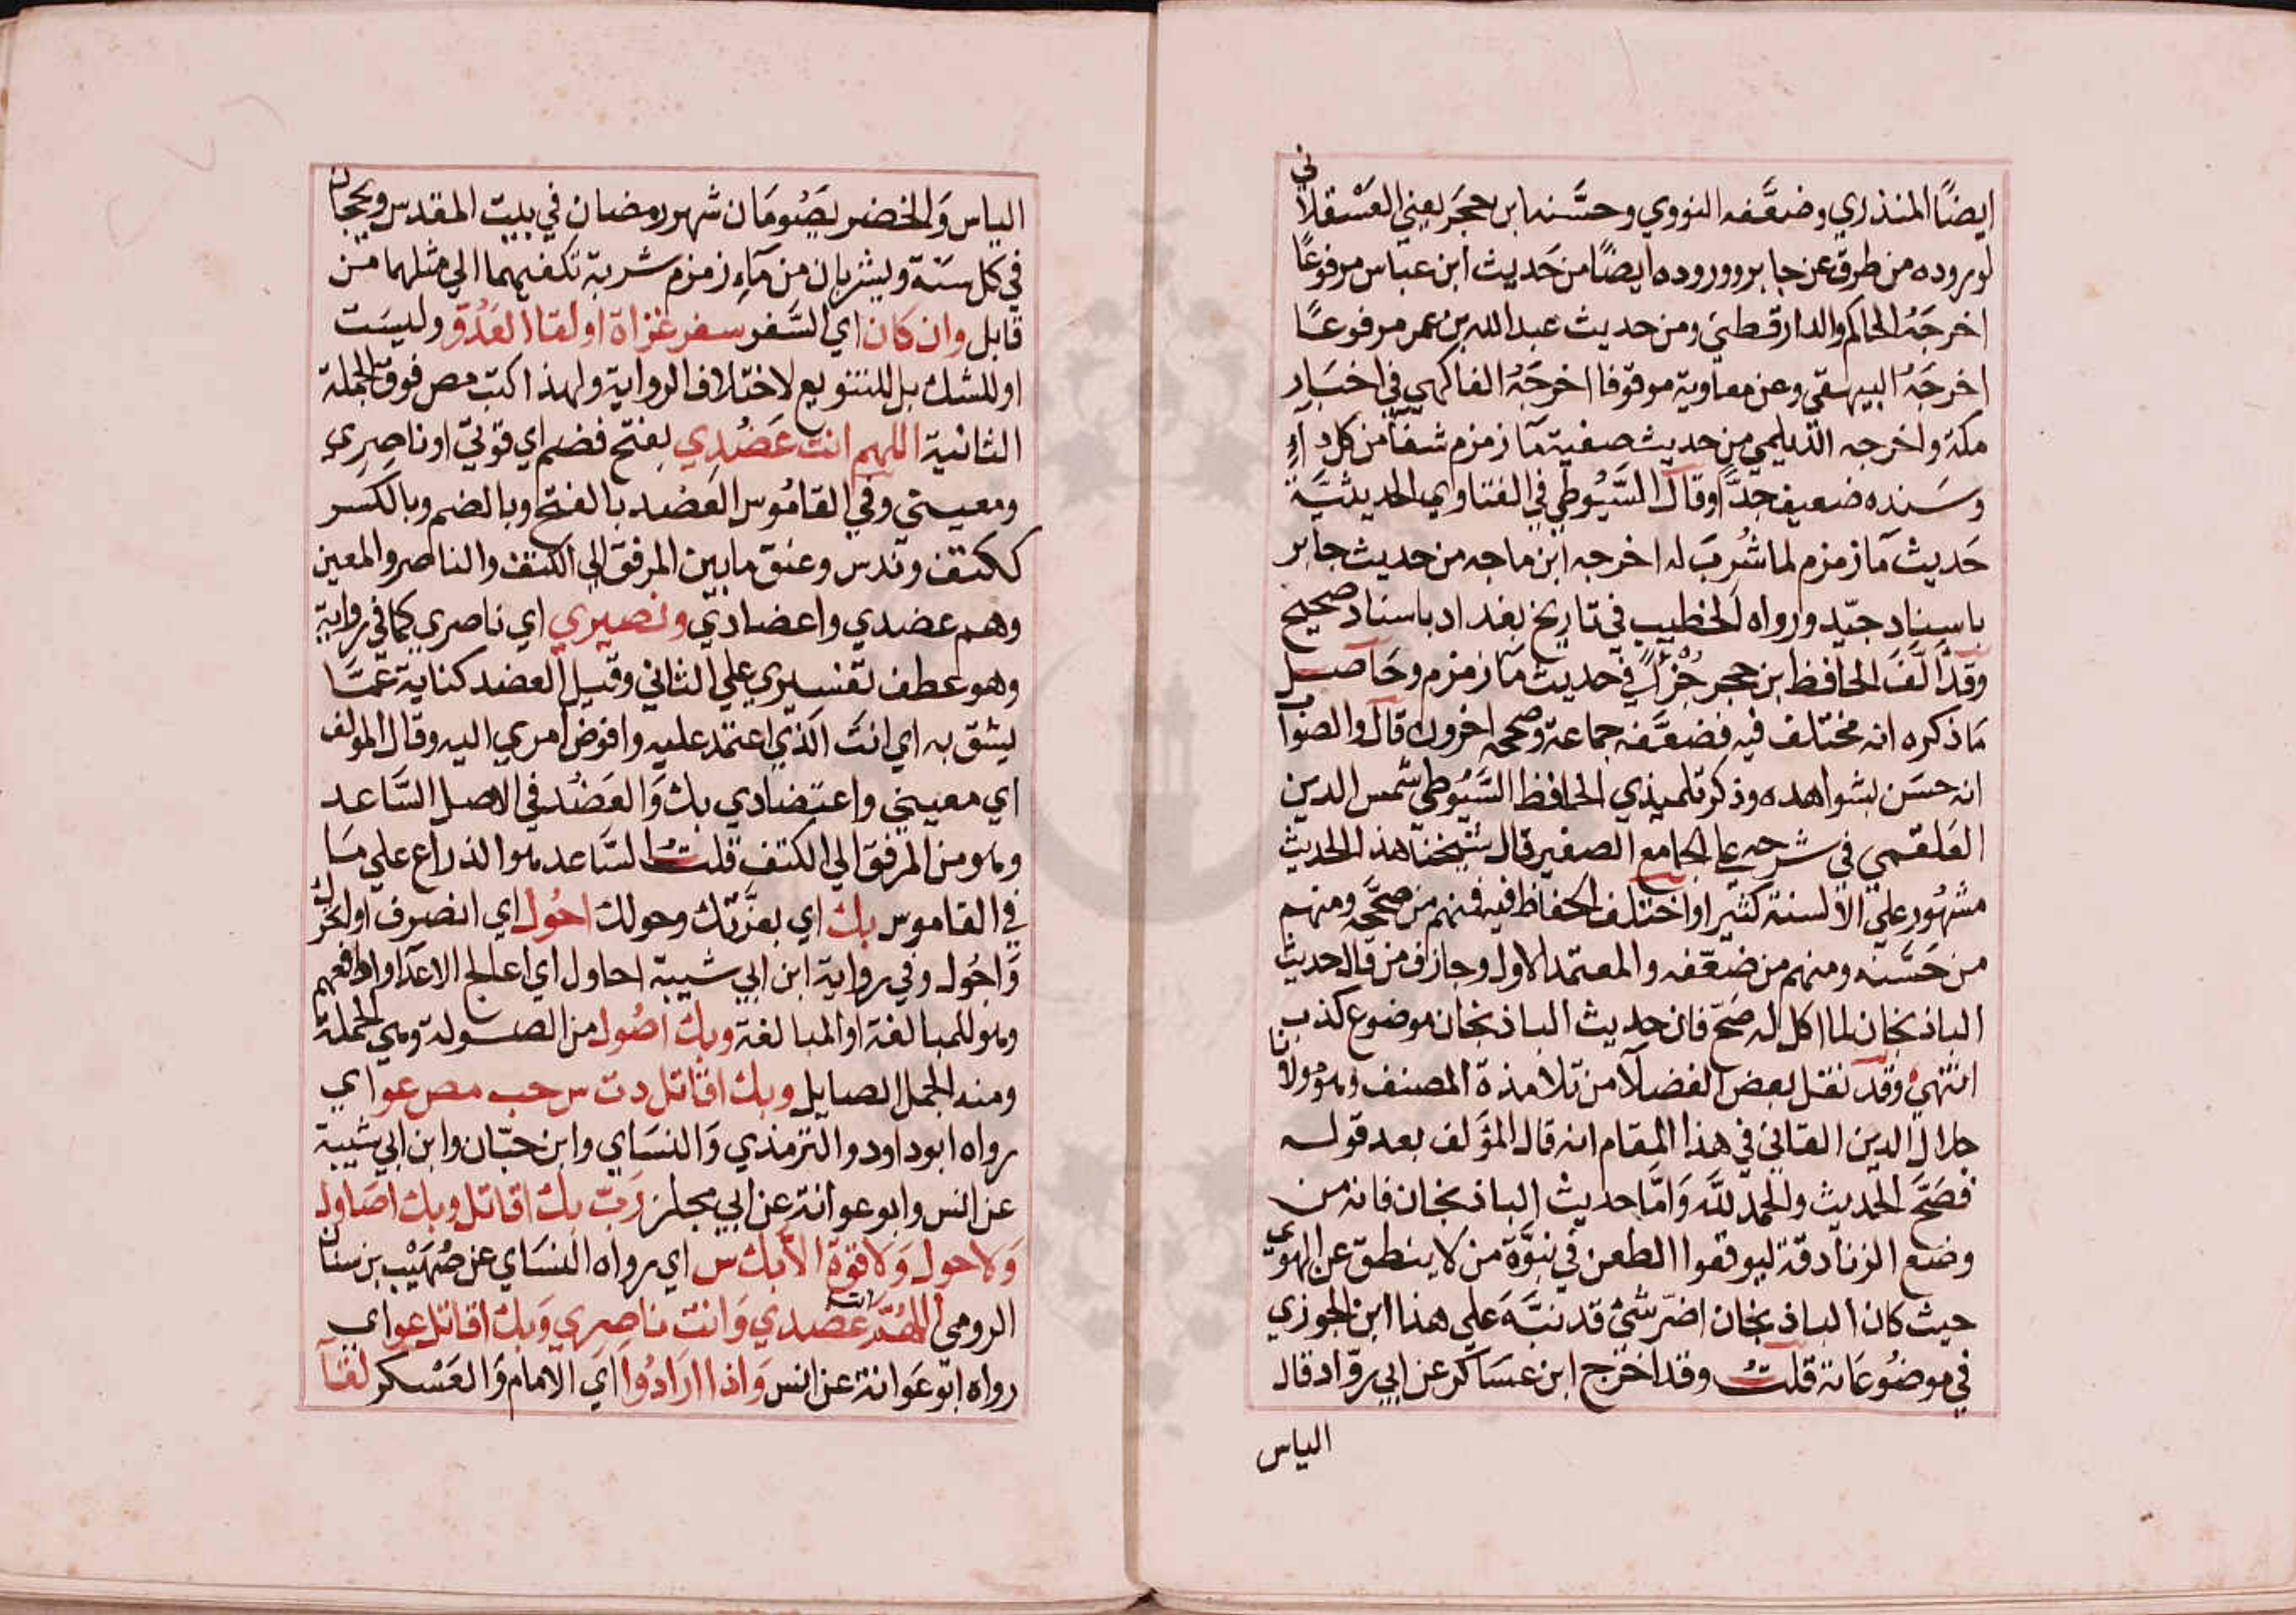 ايضًا المنذري وضعَّفه النووي وحسَّنه ابن حجَر يعني العَسْقلاني
لوروده من طرق عن جابر ووروده ايضًا من حَديث ابن عباس مرفوعًا
اخرجَهُ الحاكم والدارقطني ومن حديث عبد الله بن عمر مرفوعًا
اخرجَهُ البيهقي وعن معاوية موقوفا اخرجَهُ الفاكهي في اخبَار
مكة واخرجه الديلمي من حديث صفية مآ زمزم شفآ من كل دآءٍ
وسَنده ضعيف جدًّا وقال السَّيُوطي في الفتاوي الحديثيَّة
حَديث مآ زمزم لما شُربَ له اخرجه ابن ماجه من حديث جابر
باسناد جيّد ورواه الخطيب في تاريخ بغداد باسناد صحيح
وقد الَّفَ الحافظ بن حجر جُزأً في حديث مآ زمزم وحَاصل
مَا ذكره انه مختلف فيه فضعَّفه جماعة وصححه اخرون قال والصواب
انه حسَن بشواهده وذكر تلميذي الحافظ السَّيُوطي شمس الدين
العَلقمي في شرحه علي الجامع الصغير قال شيخنا هذا الحديث
مشهُور علي الالسنة كثيرا واختلف الحفاظ فيه فمنهم من صحَّحه ومنهم
من حَسَّنه ومنهم من ضعّفه والمعتمد الاول وجازف من قال حديث
الباذنجان لما اكل له صَحّ فان حديث الباذنجان موضوع كذب
انتهيٰ وقد نقل بعض الفضلآ من تلامذة المصنف وهو مولانا
جلال الدين القايني في هذا المقام انه قال المؤلف بعد قوله
فصَحَّ الحديث والحمد للَّه وَامَّا حديث الباذنجان فانه من
وضع الزنادقة ليوقعوا الطعن في نبوَّة من لا ينطق عن الهوي
حيث كان الباذنجان اضرّ شئ قد نبَّهَ علي هذا ابن الجوزي
في موضوعَاته قلتُ وقد اخرج ابن عسَاكر عن ابي روّاد قال
الياس
الياس وَالخضر يصُومَان شهر رمضان في بيت المقدس ويحجان
في كل سنَة ويشربان من مآءِ زمزم شربة تكفيهما الي مثلهما من
قابل وان كان اي السَّفر سفر غزاة او لقآ العَدُوّ وليسَت
او للشك بل للتنويع لاختلاف الرواية ولهذا كتب مص فوق الجملة
الثانية اللهم انت عَضُدِي بفتح فضم اي قوتي او ناصِري
ومعيني وفي القامُوس العَضد بالفتح وبالضم وبالكسر
ككتف وندس وعنق ما بين المرفق الي الكتف والناصر والمعين
وهم عضدي واعضادي ونصيري اي ناصري كما في رواية
وهو عطف تفسيري علي الثاني وقيل العضد كناية عَمَّا
يثق به اي انتَ الذي اعتمد عليه وافوض امري اليه وقال المولف
اي معيني واعتضادي بك وَالعَضُد في الاصل السَّاعد
وهو من المرفق الي الكتف قلتُ السَّاعد هو الذراع علي مَا
في القاموس بك اي بعزَّتك وحولك احُول اي انصرف او اتحرك
وَاجُول وفي رواية ابن ابي شيبة احاول اي اعالج الاعدآ وادافعهم
وهو للمبالغة او المبالغة وبك اصُول من الصولة وهي الحملة
ومنه الجمل الصايل وبك اقاتل دت س حب مص عو اي
رواه ابو داود والترمذي وَالنسَاي وابن حبّان وابن ابي شيبة
عن انس وابو عوانة عن ابي مجلز رَبّ بك اقاتل وبك اصَاول
وَلا حول وَلا قوة الا بك س اي رواه النسَاي عن صُهَيْب بن سنان
الرومي اللهُمَّ انت عَضدي وَانت ناصِري وَبك اقاتل عو اي
رواه ابو عَوانة عن انس وَاذا ارَادُوا اي الامام وَالعَسْكر لقآ